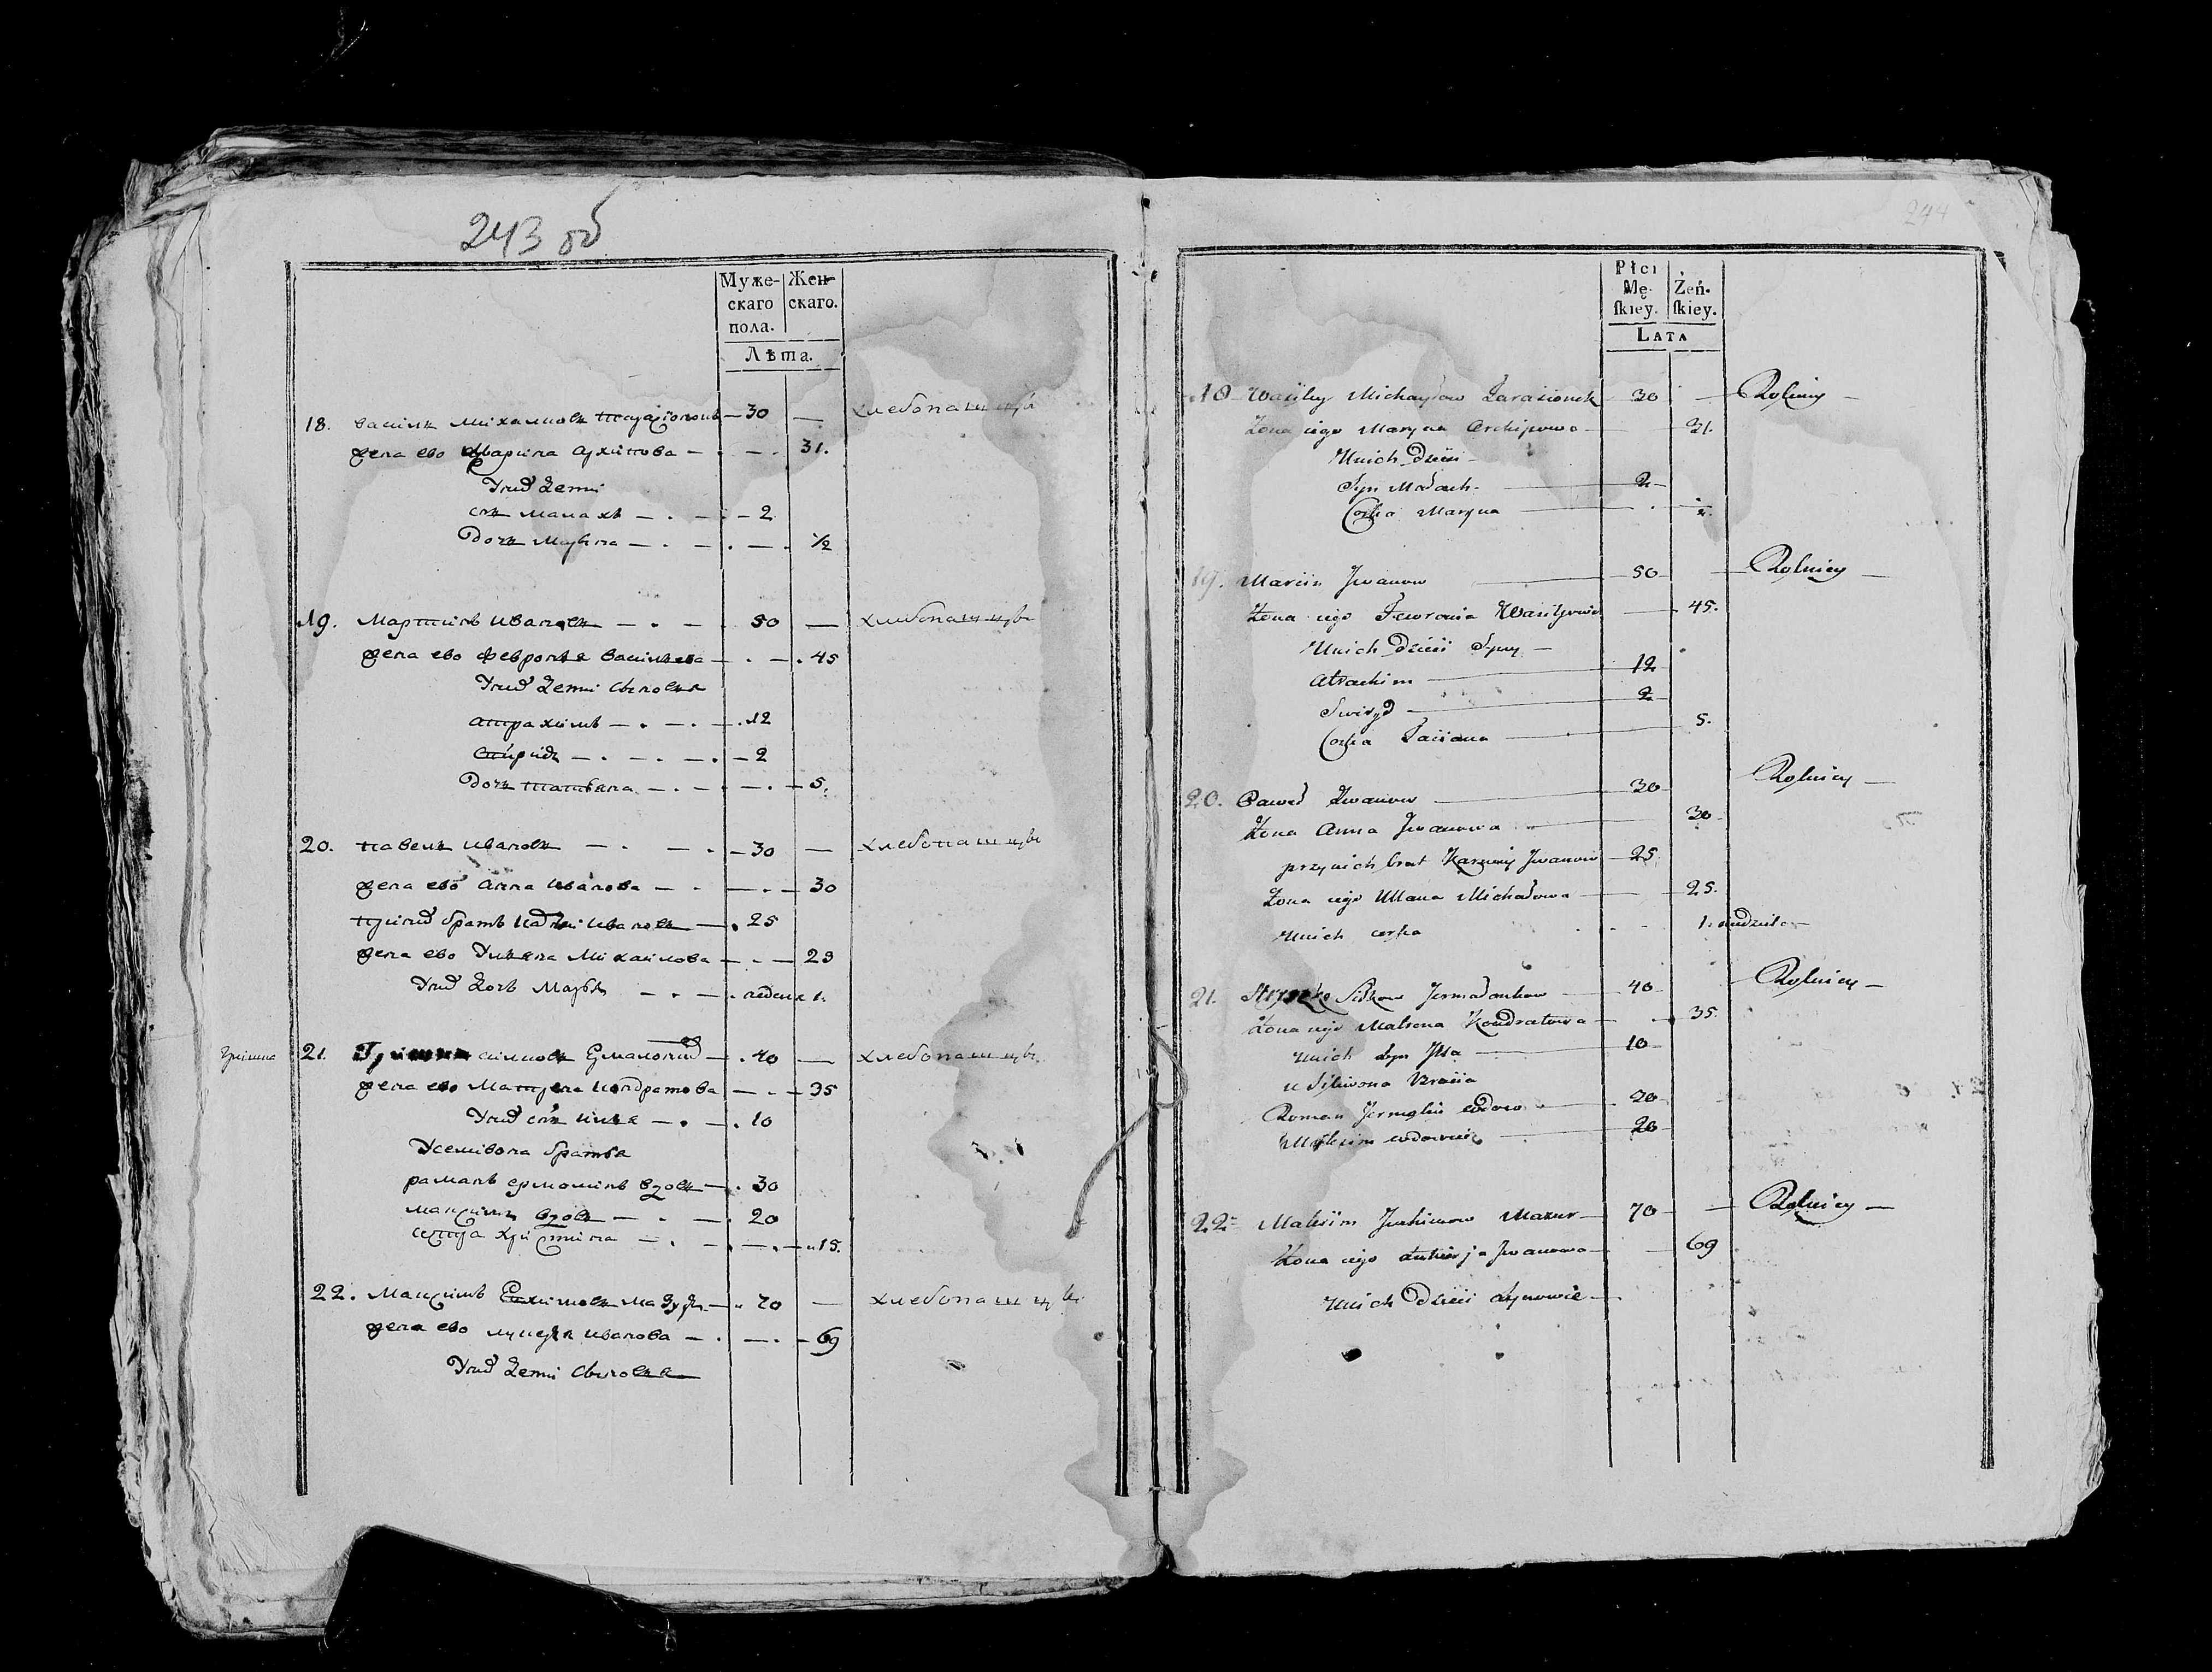 243 об
Муже- Жен-
скаго скаго.
пола.
Лѣта.
18. василь михаиловъ — 30 — хлебопашцы
жена ево Марина архипова — 31.
У них дети
сын малахъ — 2
дочь Марина — ½
19. Мартинъ ивановъ — 50 — хлебопашцы
жена ево февронья васильева — 45
У них дети сыновья
атрахимъ — 12
спиридъ — 2
дочь татьяна — 5.
20. павелъ ивановъ — 30 — хлебопашцы
жена ево анна иванова — 30
при них братъ ивановъ — 25
жена ево Ульяна Михаилова — 23
У них дочь Марья — недель 1.
Гришка 21. Ермалонковъ — 40 — хлебопашцы
жена ево Матрена кондратова — 35
У них сын илья — 10
У селивона братья
раманъ ермолинъ вдовъ — 30
максимъ вдовъ — 20
сестра христина — 15.
22. Максимъ Ехимовъ мазуръ — 70 — хлебопашцы
жена ево лукерья иванова — 69
У них дети сыновья
244
Płci
Mę- Żeń-
ſkiey. ſkiey.
LATA
18 Wasiley Michayłow Tarasionek — 30 — Rolnicy —
Zona iego Maryna Archipowa — 31.
U nich Dzieci —
Syn Małach — 2 —
Corka Maryna — ½
19. Marcin Jwanow — 50 — Rolnicy —
Zona iego Fewronia Wasiljewa — 45.
U nich Dzieci Syny —
Atrachim — 12
Swiryd — 2
Corka Taciana — 5.
20. Paweł Jwanow — 30 Rolnicy —
Zona Anna Jwanowa — 30
przy nich brat Jwanow — 25
Zona iego Ullana Michałowa — 25.
U nich corka 1. niedziel —
21. Jermałonkow — 40 Rolnicy —
Zona iego Matrona Kondratowa — 35.
U nich syn Jlla — 10
u Siliwona Bracia
Roman wdow — 20
Maksim wdowiec — 20
22 Maksim Juchimow Mazur — 70 — Rolnicy —
Zona iego Jwanowa — 69
U nich Dzieci synowie —